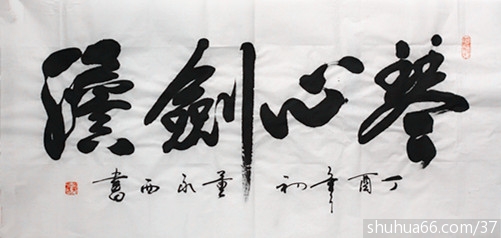 琴心劍漢
丁酉年初 董永西書
shuhua66.com/37